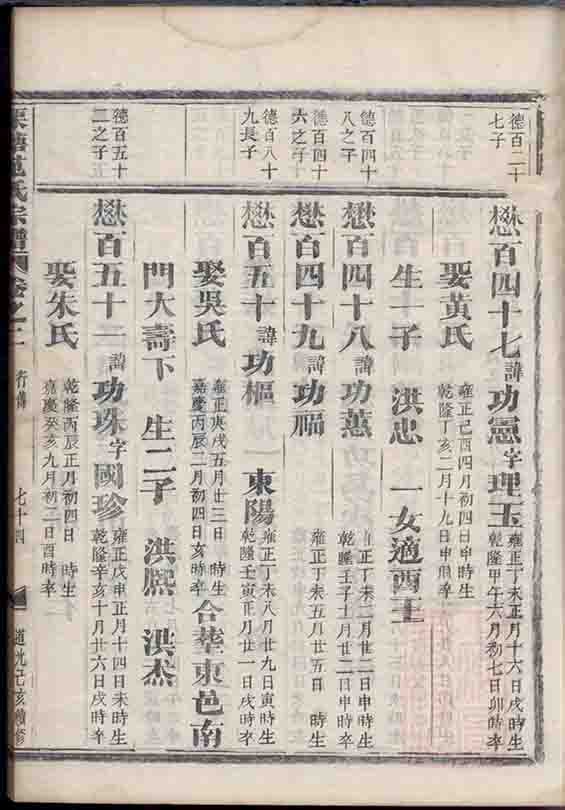 德百二十
七子
懋百四十七諱功憲字理玉
雍正丁未正月十六日戌時生
乾隆甲午六月初七日卯時卒
娶黃氏
雍正己酉四月初四日申時生
乾隆丁亥二月十九日申時卒
生一子 洪忠 一女適西王
德百四十
八之子
懋百四十八諱功蕙
雍正丁未二月廿二日申時生
乾隆壬子十一月廿二日申時卒
德百四十
六之子
懋百四十九諱功福
雍正丁未五月廿五日 時生
德百八十
九長子
懋百五十諱功樞 東陽
雍正丁未八月廿九日寅時生
乾隆壬寅正月廿一日戌時卒
娶吳氏
雍正庚戌五月廿三日 時生
嘉慶丙辰二月初四日亥時卒
合葬東邑南
門大壽下 生二子 洪熙 洪杰
德百五十
二之子
懋百五十二諱功珠字國珍
雍正戊申正月十四日未時生
乾隆辛亥十月廿六日戌時卒
娶朱氏
乾隆丙辰正月初四日 時生
嘉慶癸亥九月初二日酉時卒
氏宗譜 卷之二 行傳 七十四 道光己亥續修